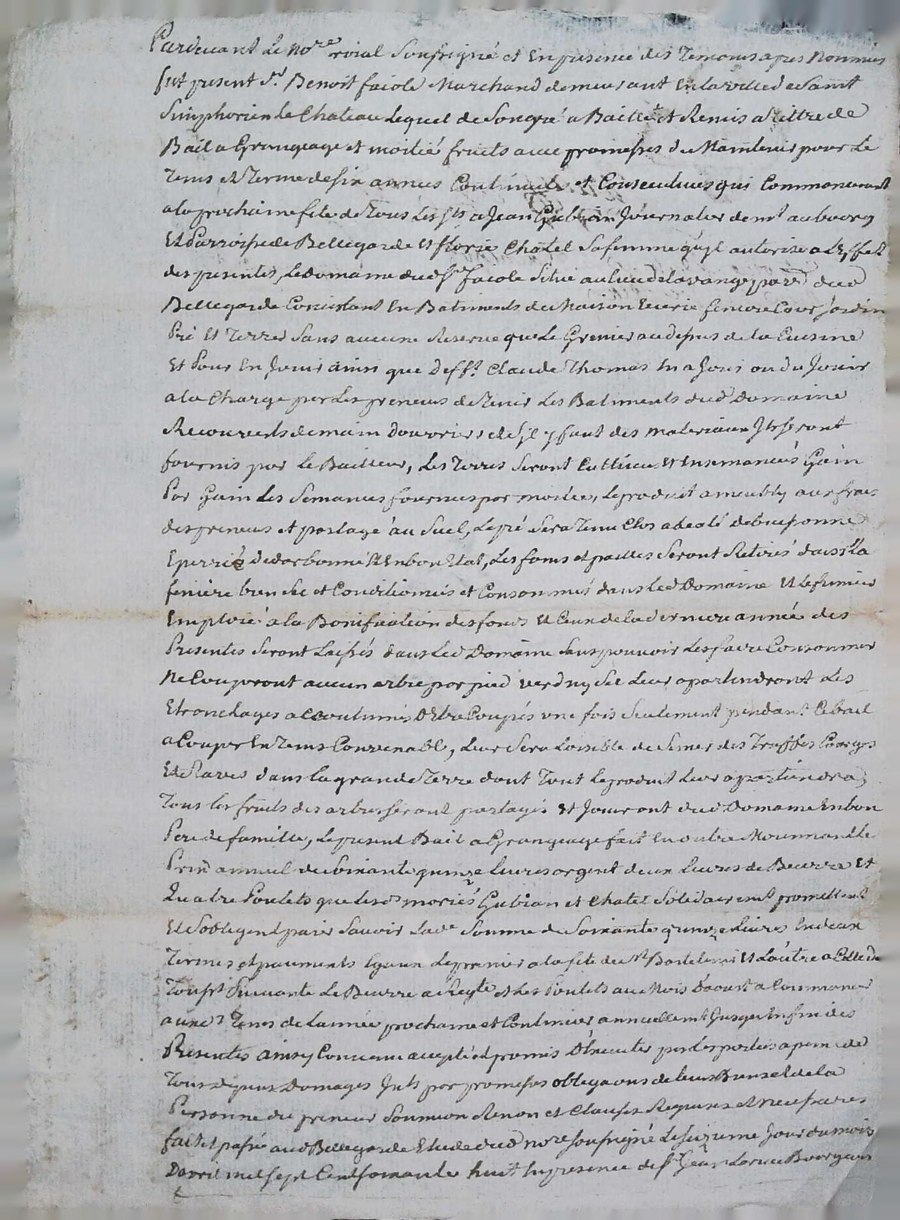 Pardevant Le No.re roial Soussigné et En presence des Temoins apres Nommés
fut present S.r Benoit faiole Marchand demeurant En la ville de Saint
Simphorien le Chateau Lequel de Son gré a Baillé et Remis a tittre de
Bail a Grangeage et moitié fruits avec promesses de Maintenir pour Le
Tems et Terme de six années Continuels et Consecutives qui Commenceront
a la prochaine fete de Tous Les Sts a Jean Gubian Journalier dem.t au bourg
Et Parroisse de Bellegarde Et florie Chatel Sa femme qu'yl autorise a L'Effet
des presentes, Le Domaine dud S.r faiole Situé au Lieu de Lavange par.e dud
Bellegarde Concistant En Batiments de Maison Ecurie feniere Cour Jardin
Pré Et Terres Sans aucune Reserve que Le Grenier au dessus de la Cuisine
Et Pour En Jouir ainsi que deff.t Claude Thomas En a Joui ou du Jouir
a la Charge par Les preneurs de Tenir Les Batiments dud Domaine
Recouverts de main D'ouvriers et s'il y faut des materiaux Ils seront
fournis par le Bailleur, Les Terres Seront Cultivées Et Ensemancés Gain
Par Gain Les Semances fournies par moitiée, le produit ameubly aux frais
des preneurs et partagé au Suel, Le pré Sera Tenu Clos a de alé de buissonné
Eperrié de darbonné Et En bon Etat, Les foins et pailles Seront Retirés dans la
feniere bien sec et Conditionnés et Consommés dans led Domaine Et Le fumier
Emploié a la Bonification des fonds Et Ceux de la derniere année des
Presentes Seront Laissés dans Led Domaine Sans pouvoir Les faire Consommer
Ne Couperont aucun arbre par pied verd ny Sec Leur apartindront Les
Etronchages accoutumés D'Etre Coupés une fois Seulement pendant Ce bail
a Couper En Tems Convenable, Leur Sera Loisible de Semer des Truffes Courges
Et Raves dans la grande Terre dont Tout Le produit Leur apartiendra,
Tous les fruits des arbres seront partagés Et Jouiront dud Domaine En bon
Pere de famille, Le present Bail a Grangeage fait En outre Moiennant Le
Prix annuel de Soixante quinze Livres argent deux Livres de Beurre Et
Quatre Poulets que lesd mariés Gubian et Chatel Solidairement promettent
Et S'obligent paier Savoir Lad.e Somme de Soixante quinze Livres En deux
Termes et paiements Egaux Le premier a la fete de St Bartelemi Et L'autre a Celle de
Touss.t Suivante Le Beurre a Regle et Les Poulets au Mois D'aoust a Commencer
auxd. Tems de L'année prochaine et Continuer annuellem.t Jusques En fin des
Presentes ainsy Convenu accepté et promis D'Executer par Les parties a peine de
Tous Depens Domages Intts par promesses obligaons de leurs Biens et de la
Personne du preneur Soumion Renon et Clauses Requises et necessaires
fait et passé aud Bellegarde Etude dud no.re soussigné Le seizieme Jour du mois
D'avril mil sept Cent soixante huit En presence de S.r Jean Bourgeois